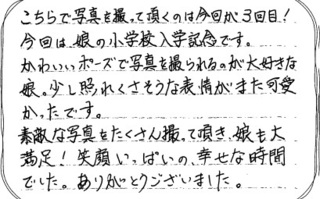 こちらで写真を撮って頂くのは今回が3回目!
今回は娘の小学校入学記念です。
かわいいポーズで写真を撮られるのが大好きな
娘。少し照れくさそうな表情がまた可愛
かったです。
素敵な写真をたくさん撮って頂き、娘も大
満足!笑顔いっぱいの、幸せな時間
でした。ありがとうございました。